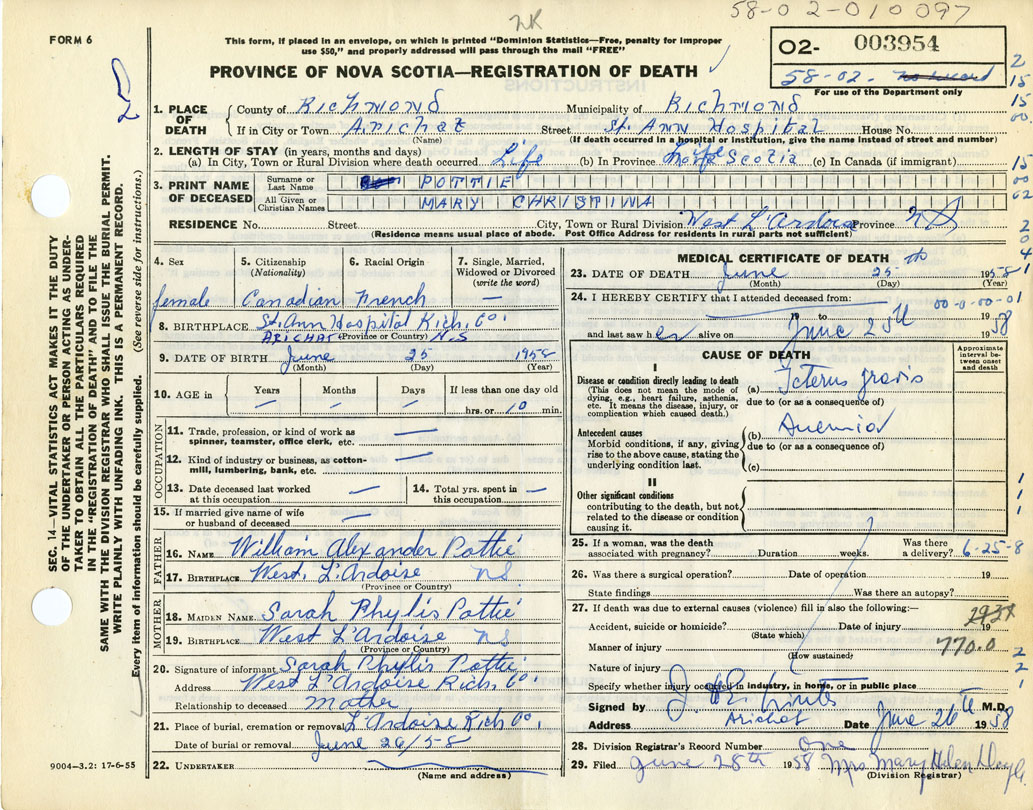 NR
58-02-010097
FORM 6
This form, if placed in an envelope, on which is printed "Dominion Statistics—Free, penalty for improper
use $50," and properly addressed will pass through the mail "FREE"
PROVINCE OF NOVA SCOTIA—REGISTRATION OF DEATH
02- 003954
58-02-
For use of the Department only
1. PLACE OF DEATH
County of Richmond Municipality of Richmond
If in City or Town Arichat Street St. Ann Hospital House No.
(Name) (If death occurred in a hospital or institution, give the name instead of street and number)
2. LENGTH OF STAY (in years, months and days)
(a) In City, Town or Rural Division where death occurred Life (b) In Province Scotia (c) In Canada (if immigrant)
3. PRINT NAME OF DECEASED
Surname or Last Name POTTIE
All Given or Christian Names MARY CHRISTINA
RESIDENCE No. Street City, Town or Rural Division West L'Ardoise Province NS
(Residence means usual place of abode. Post Office Address for residents in rural parts not sufficient)
4. Sex female
5. Citizenship (Nationality) Canadian
6. Racial Origin French
7. Single, Married, Widowed or Divorced (write the word) —
8. BIRTHPLACE St. Ann Hospital Rich. Co.
ARICHAT (Province or Country) N.S
9. DATE OF BIRTH June 25 1958
(Month) (Day) (Year)
10. AGE in Years — Months — Days — If less than one day old
hrs. or 10 min.
OCCUPATION
11. Trade, profession, or kind of work as spinner, teamster, office clerk, etc. —
12. Kind of industry or business, as cotton-mill, lumbering, bank, etc. —
13. Date deceased last worked at this occupation —
14. Total yrs. spent in this occupation —
15. If married give name of wife or husband of deceased —
FATHER
16. NAME William Alexander Pottie
17. BIRTHPLACE West L'Ardoise NS.
(Province or Country)
MOTHER
18. MAIDEN NAME Sarah Phylis Pottie
19. BIRTHPLACE West L'Ardoise NS
(Province or Country)
20. Signature of informant Sarah Phylis Pottie
Address West L'Ardoise Rich, Co.
Relationship to deceased Mother
21. Place of burial, cremation or removal L'Ardoise Rich Co.
Date of burial or removal June 26/58
22. UNDERTAKER
(Name and address)
9004—3.2: 17-6-55
SEC. 14—VITAL STATISTICS ACT MAKES IT THE DUTY
OF THE UNDERTAKER OR PERSON ACTING AS UNDER-
TAKER TO OBTAIN ALL THE PARTICULARS REQUIRED
IN THE "REGISTRATION OF DEATH" AND TO FILE THE
SAME WITH THE DIVISION REGISTRAR WHO SHALL ISSUE THE BURIAL PERMIT.
WRITE PLAINLY WITH UNFADING INK. THIS IS A PERMANENT RECORD.
Every item of information should be carefully supplied. (See reverse side for instructions.)
MEDICAL CERTIFICATE OF DEATH
23. DATE OF DEATH June 25th 1958
(Month) (Day) (Year)
24. I HEREBY CERTIFY that I attended deceased from: 00-0-00-01
19 to June 25th 1958
and last saw her alive on 1958
CAUSE OF DEATH
Approximate interval between onset and death
I
Disease or condition directly leading to death
(This does not mean the mode of dying, e.g., heart failure, asthenia, etc. It means the disease, injury, or complication which caused death.)
(a) Icterus gravis
due to (or as a consequence of)
Antecedent causes
Morbid conditions, if any, giving rise to the above cause, stating the underlying condition last.
(b) Anemia
due to (or as a consequence of)
(c)
II
Other significant conditions
contributing to the death, but not related to the disease or condition causing it.
25. If a woman, was the death associated with pregnancy? Duration weeks. Was there a delivery? 6-25-8
26. Was there a surgical operation? Date of operation 19
State findings Was there an autopsy?
27. If death was due to external causes (violence) fill in also the following:—
Accident, suicide or homicide? Date of injury 19
(State which)
Manner of injury 770.0
(How sustained)
Nature of injury
Specify whether injury occurred in industry, in home, or in public place
Signed by M.D.
Address Arichat Date June 26th 1958
28. Division Registrar's Record Number One
29. Filed June 28th 1958 Mrs Mary Helen
(Division Registrar)